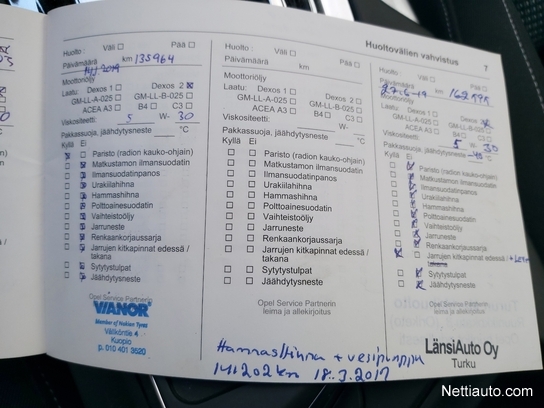 Huoltovälien vahvistus
7
Huolto : Väli ☐ Pää ☐
Päivämäärä km 135964
Moottoriöljy
Laatu: Dexos 1 ☐ Dexos 2 ☒
GM-LL-A-025 ☐ GM-LL-B-025 ☐
ACEA A3 ☐ B4 ☐ C3 ☐
Viskositeetti: 5 W- 30
Pakkassuoja, jäähdytysneste °C
Kyllä Ei
Paristo (radion kauko-ohjain)
Matkustamon ilmansuodatin
Ilmansuodattimen panos
Urakiilahihna
Hammashihna
Polttoainesuodatin
Vaihteistoöljy
Jarruneste
Renkaankorjaussarja
Jarrujen kitkapinnat edessä /
takana
Sytytystulpat
Jäähdytysneste
Opel Service Partnerin
VIANOR
Member of Nokian Tyres
Väliköntie 4
Kuopio
p. 010 401 3620
Huolto : Väli ☐ Pää ☐
Päivämäärä km
Moottoriöljy
Laatu: Dexos 1 ☐ Dexos 2 ☐
GM-LL-A-025 ☐ GM-LL-B-025 ☐
ACEA A3 ☐ B4 ☐ C3 ☐
Viskositeetti: W-
Pakkassuoja, jäähdytysneste °C
Kyllä Ei
Paristo (radion kauko-ohjain)
Matkustamon ilmansuodatin
Ilmansuodattimen panos
Urakiilahihna
Hammashihna
Polttoainesuodatin
Vaihteistoöljy
Jarruneste
Renkaankorjaussarja
Jarrujen kitkapinnat edessä /
takana
Sytytystulpat
Jäähdytysneste
Opel Service Partnerin
leima ja allekirjoitus
Hammashihna + vesipumppu
141202 km 18.3.2017
Huolto : Väli ☐ Pää ☐
Päivämäärä km
27.6-19
Moottoriöljy
Laatu: Dexos 1 ☐ Dexos ☒
GM-LL-A-025 ☐ GM-LL-B-025 ☐
ACEA A3 ☐ B4 ☐ C3 ☐
Viskositeetti: 5 W- 30
Pakkassuoja, jäähdytysneste -40 °C
Kyllä Ei
Paristo (radion kauko-ohjain)
Matkustamon ilmansuodatin
Ilmansuodattimen panos
Urakiilahihna
Hammashihna
Polttoainesuodatin
Vaihteistoöljy
Jarruneste
Renkaankorjaussarja
Jarrujen kitkapinnat edessä /
Sytytystulpat
Jäähdytysneste
Opel Service Partnerin
leima ja allekirjoitus
LänsiAuto Oy
Turku
Nettiauto.com